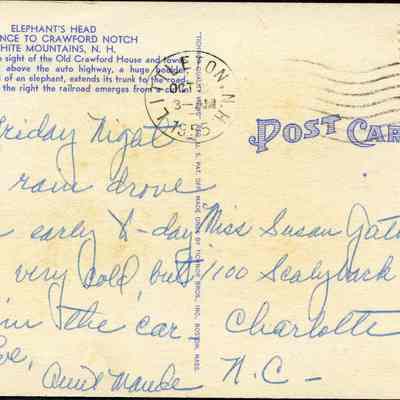 ELEPHANT'S HEAD
NCE TO CRAWFORD NOTCH
HITE MOUNTAINS, N. H.
sight of the Old Crawford House and
above the auto highway, a huge boulder,
of an elephant, extends its trunk to the road.
the right the railroad emerges from a
LITTLETON, N.H.
OCT
3-AM
1955
POST CAR
TICHNOR QUALITY
U. S. PAT. OFF. MADE ONLY BY TICHNOR BROS., INC., BOSTON, MASS.
Friday Night
rain drove
early to-day
very cold, but
in the car,
Aunt Maude
Miss Susan
1100 Scalybark
Charlotte
N.C-